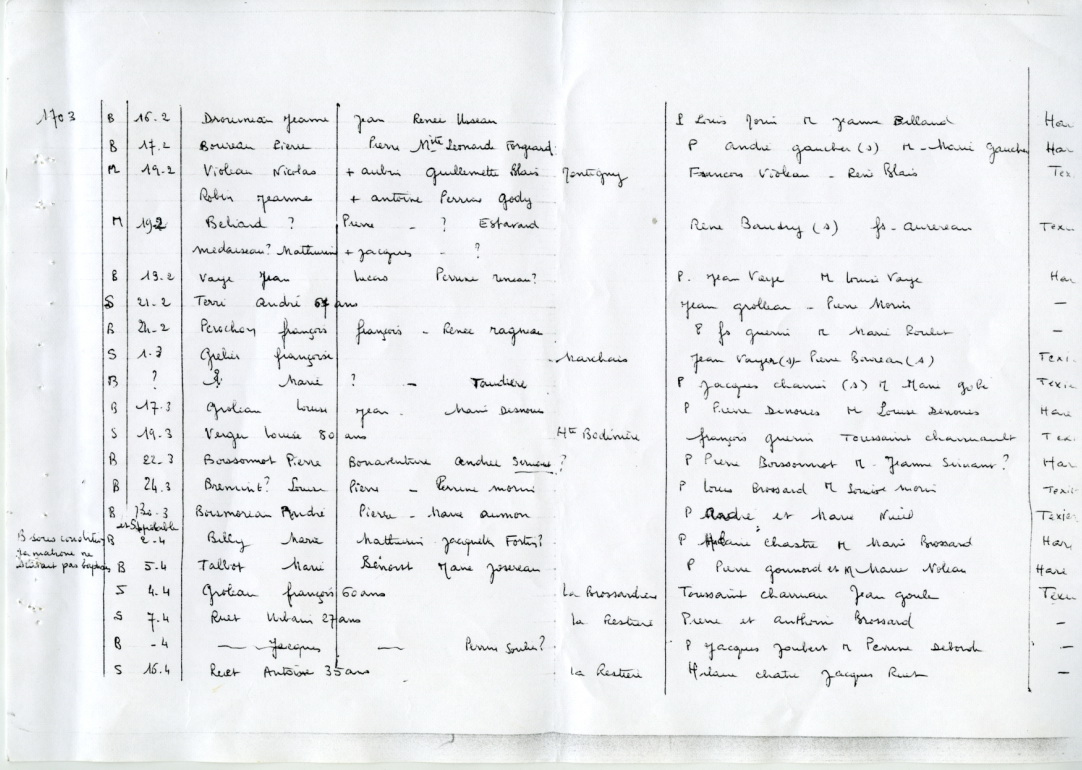 1703 B 16.2 Drouineau Jeanne Jean Renee Usseau P Louis Morin M Jeanne Billaud Har
B 17.2 Boureau Pierre Pierre Mite Leonarde Forgeard P andré gaucher (s) M - Marie gaucher Har
M 19-2 Violeau Nicolas + aubin Guillemette Blais Montigny Francois Violeau - René Blais Tex
Robin Jeanne + antoine Perrine gody
M 19.2 Beliard ? Pierre - ? Estavard René Baudry (s) fs. aurereau Texi
medaiseau? Mathurin + jacques - ?
B 19.2 Vaye Jean Lucas Perrine ? P. Jean Vaye M Louis Vaye Har
S 21-2 Terri André 67 ans Jean groleau - Pierre Morin -
B 24-2 Perochon françois françois - Renee ragneau P fs guerin M Marie -
S 1.3 Grelier françoise - Marchais Jean Vayer(s) Pierre Boureau (s) Texi.
B ? Marie ? - Taudiere P Jacques charrin (s) M Marie Texi
B 17.3 Groleau Louise Jean - Marie Desnoues P Pierre Denoues M Louise Denoues Hare
S 19.3 Verger Louise 80 ans Hte Bodiniere françois guerin Toussaint charruault Tex
B 22.3 Boissonnot Pierre Bonaventure Andrée ? P Pierre Boissonnot M - Jeanne Suivant? Har
B 24.3 ? Louise Pierre - Perrine morin P Louis Brossard M Louise Morin Texi
B 30-3 Bousmoreau André Pierre - Marie aumon P André et Marie Texier
B 2-4 Billy Marie Mathurin Jacquette Fortin? P Hilaire Chastre M Marie Brossard Har
B sous condition
la matrone ne
B 5.4 Talbot Marie Benoist Marie Josereau P Pierre gonnord et M Marie Noleau Hare
S 4.4 Groleau françois 60 ans La Brossardiere Toussaint charruau Jean goule Texi
S 7.4 Ruet Urbain 27 ans la Restiere Pierre et anthoin Brossard -
B -4 — Jacques — Perrine Soulie? P Jacques Joubert M Perrine Deborde -
S 16.4 Ruet Antoine 35 ans la Restiere Hilaire chatre Jacques Ruet -